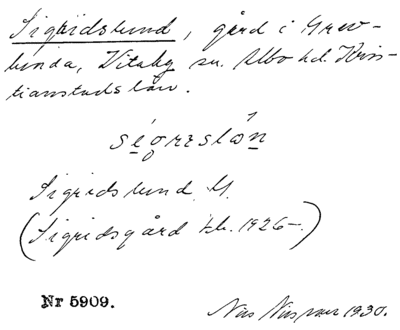 Sigridslund, gård i Grev-
lunda, Vitaby sn. Albo hd. Kris-
tianstads län.
Sigridslund
(Sigridsgård 1926-.)
Nr 5909.
Nils 1930.